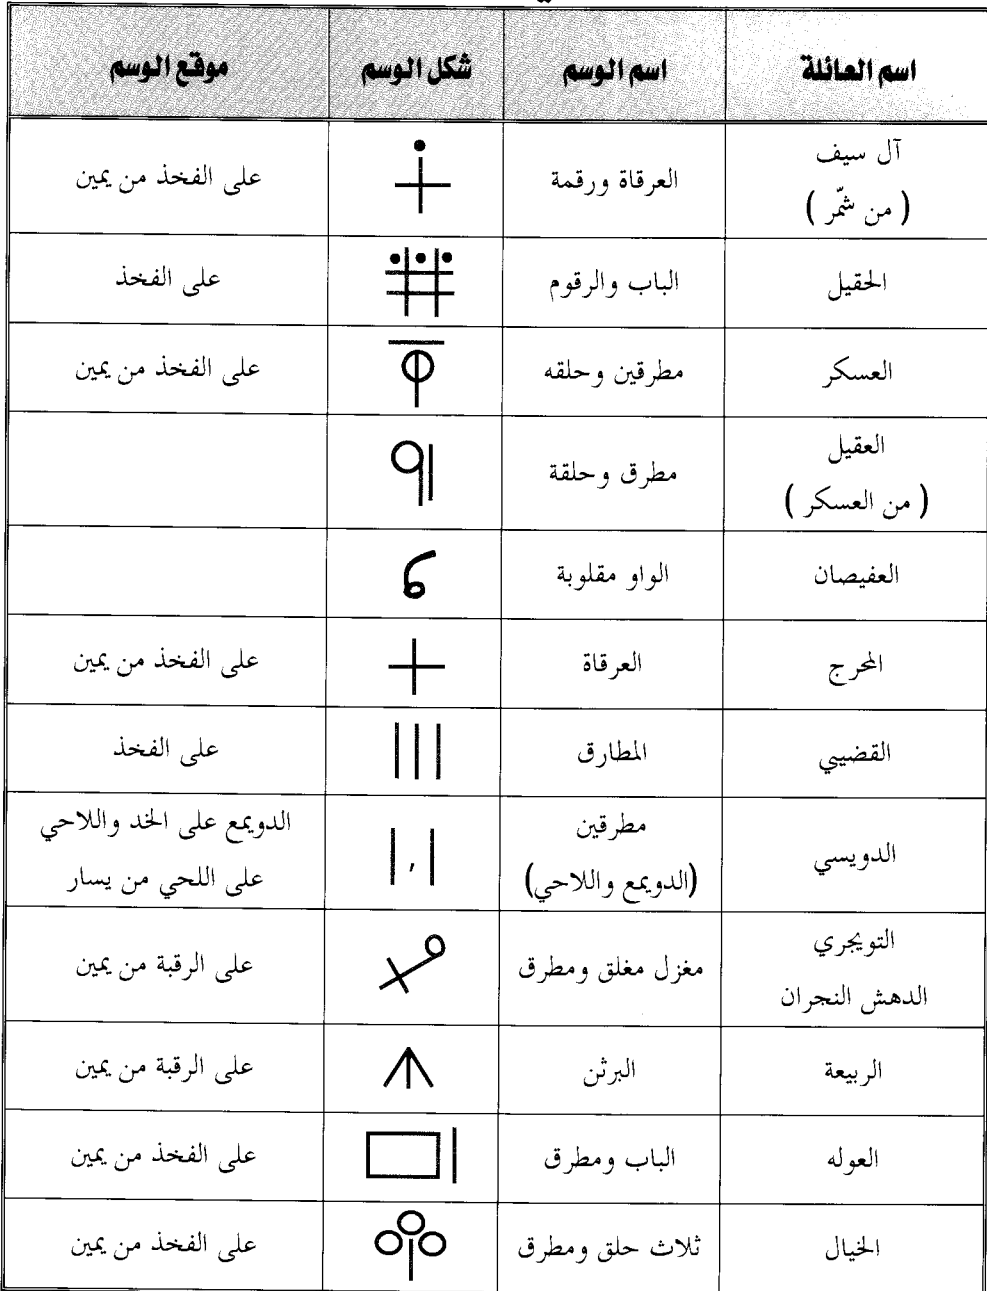 اسم العائلة اسم الوسم شكل الوسم موقع الوسم
آل سيف
( من شمّر ) العرقاة ورقمة على الفخذ من يمين
الحقيل الباب والرقوم على الفخذ
العسكر مطرقين وحلقه على الفخذ من يمين
العقيل
( من العسكر ) مطرق وحلقة
العفيصان الواو مقلوبة
المحرج العرقاة على الفخذ من يمين
القضيبي المطارق على الفخذ
الدويسي مطرقين
(الدويمع واللاحي) الدويمع على الخد واللاحي
على اللحي من يسار
التويجري
الدهش النجران مغزل مغلق ومطرق على الرقبة من يمين
الربيعة البرثن على الرقبة من يمين
العوله الباب ومطرق على الفخذ من يمين
الخيال ثلاث حلق ومطرق على الفخذ من يمين